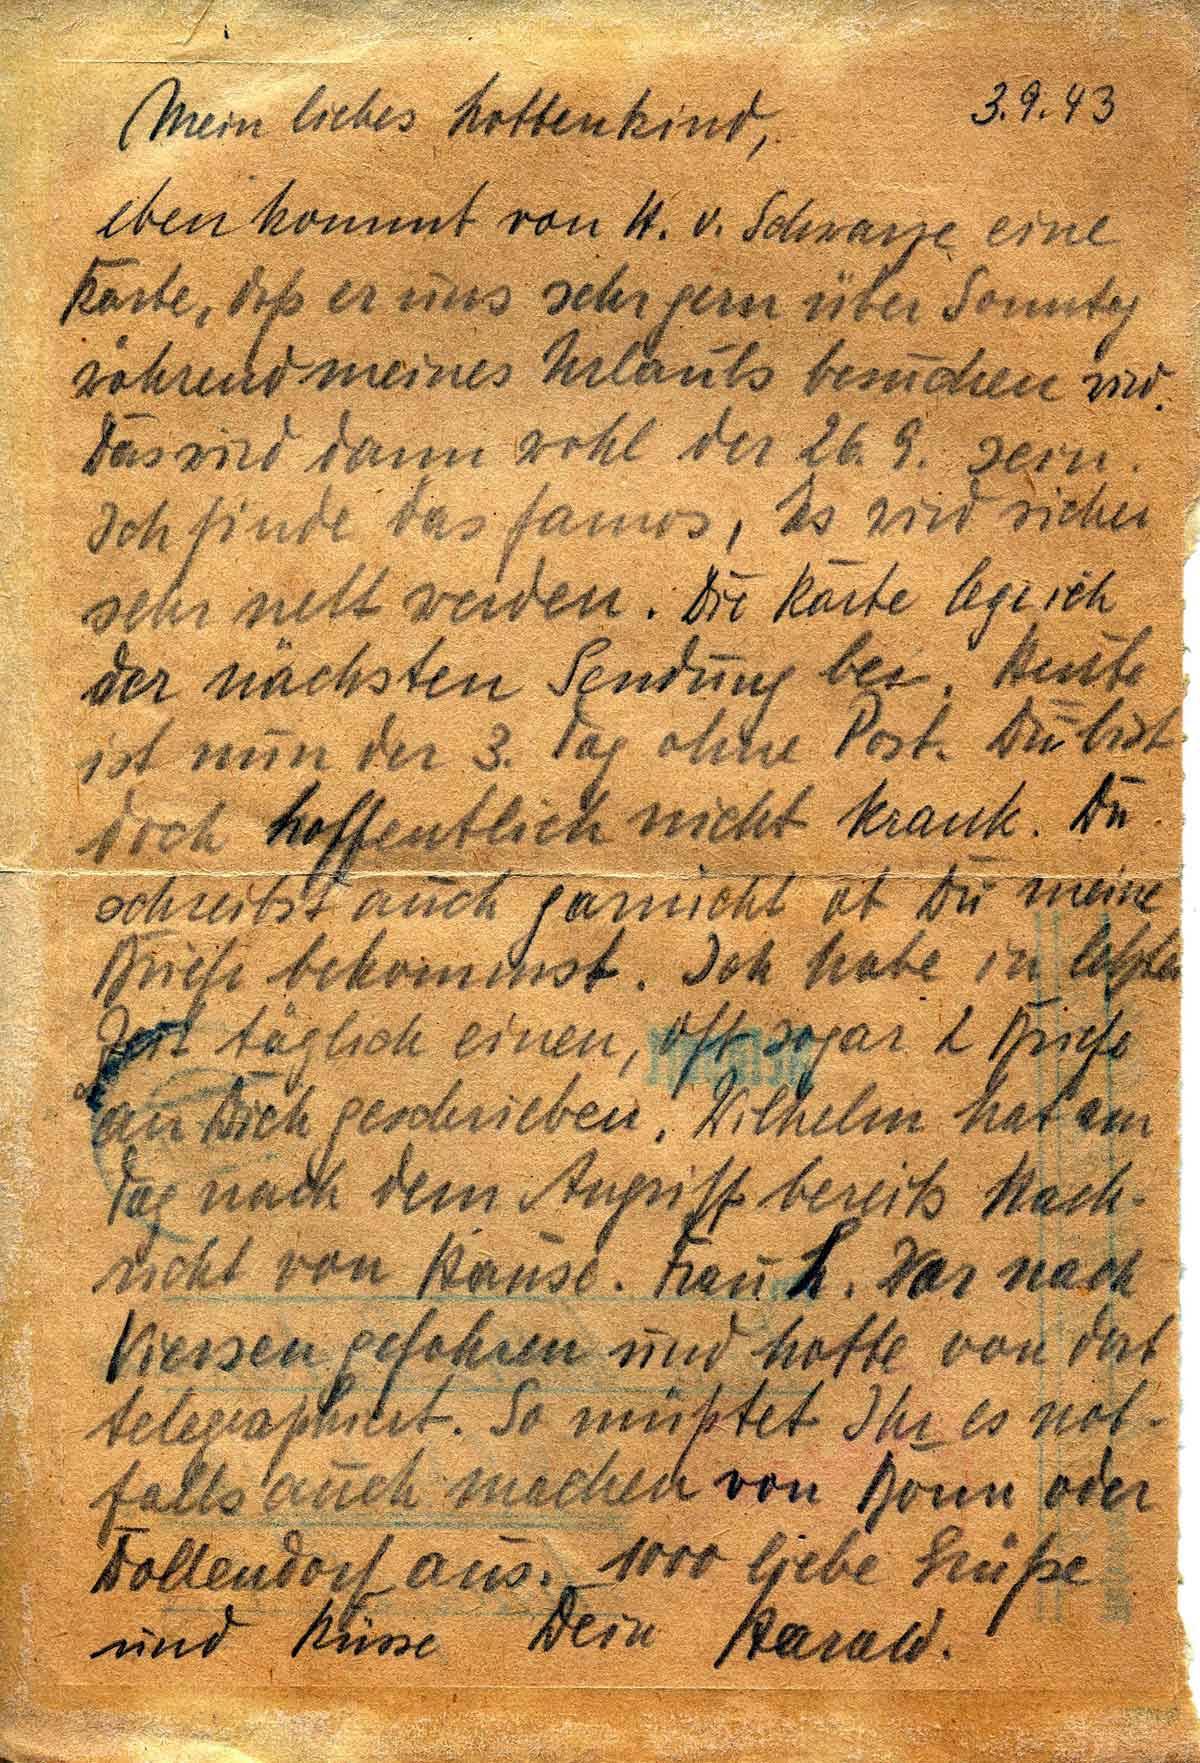 3.9.43
Mein liebes Hottenkind,
eben kommt von H. v. Schwarze eine
Karte, daß er uns sehr gern über Sonntag
während meines Urlaubs besuchen wird.
Das wird dann wohl der 26. 9. sein.
Ich finde das famos, Es wird sicher
sehr nett werden. Die Karte lege ich
der nächsten Sendung bei. Heute
ist nun der 3. Tag ohne Post. Du bist
doch hoffentlich nicht krank. Du
schreibst auch garnicht ob Du meine
Briefe bekommst. Ich habe in letzter
Zeit täglich einen, oft sogar 2 Briefe
an Dich geschrieben. Wilhelm hat am
Tag nach dem Angriff bereits Nach-
richt von Hause. Frau L. War nach
Viersen gefahren und hatte von dort
telegraphiert. So müßtet Ihr es not-
falls auch machen von Bonn oder
Dollendorf aus. 1000 liebe Grüße
und Küsse Dein Harald.